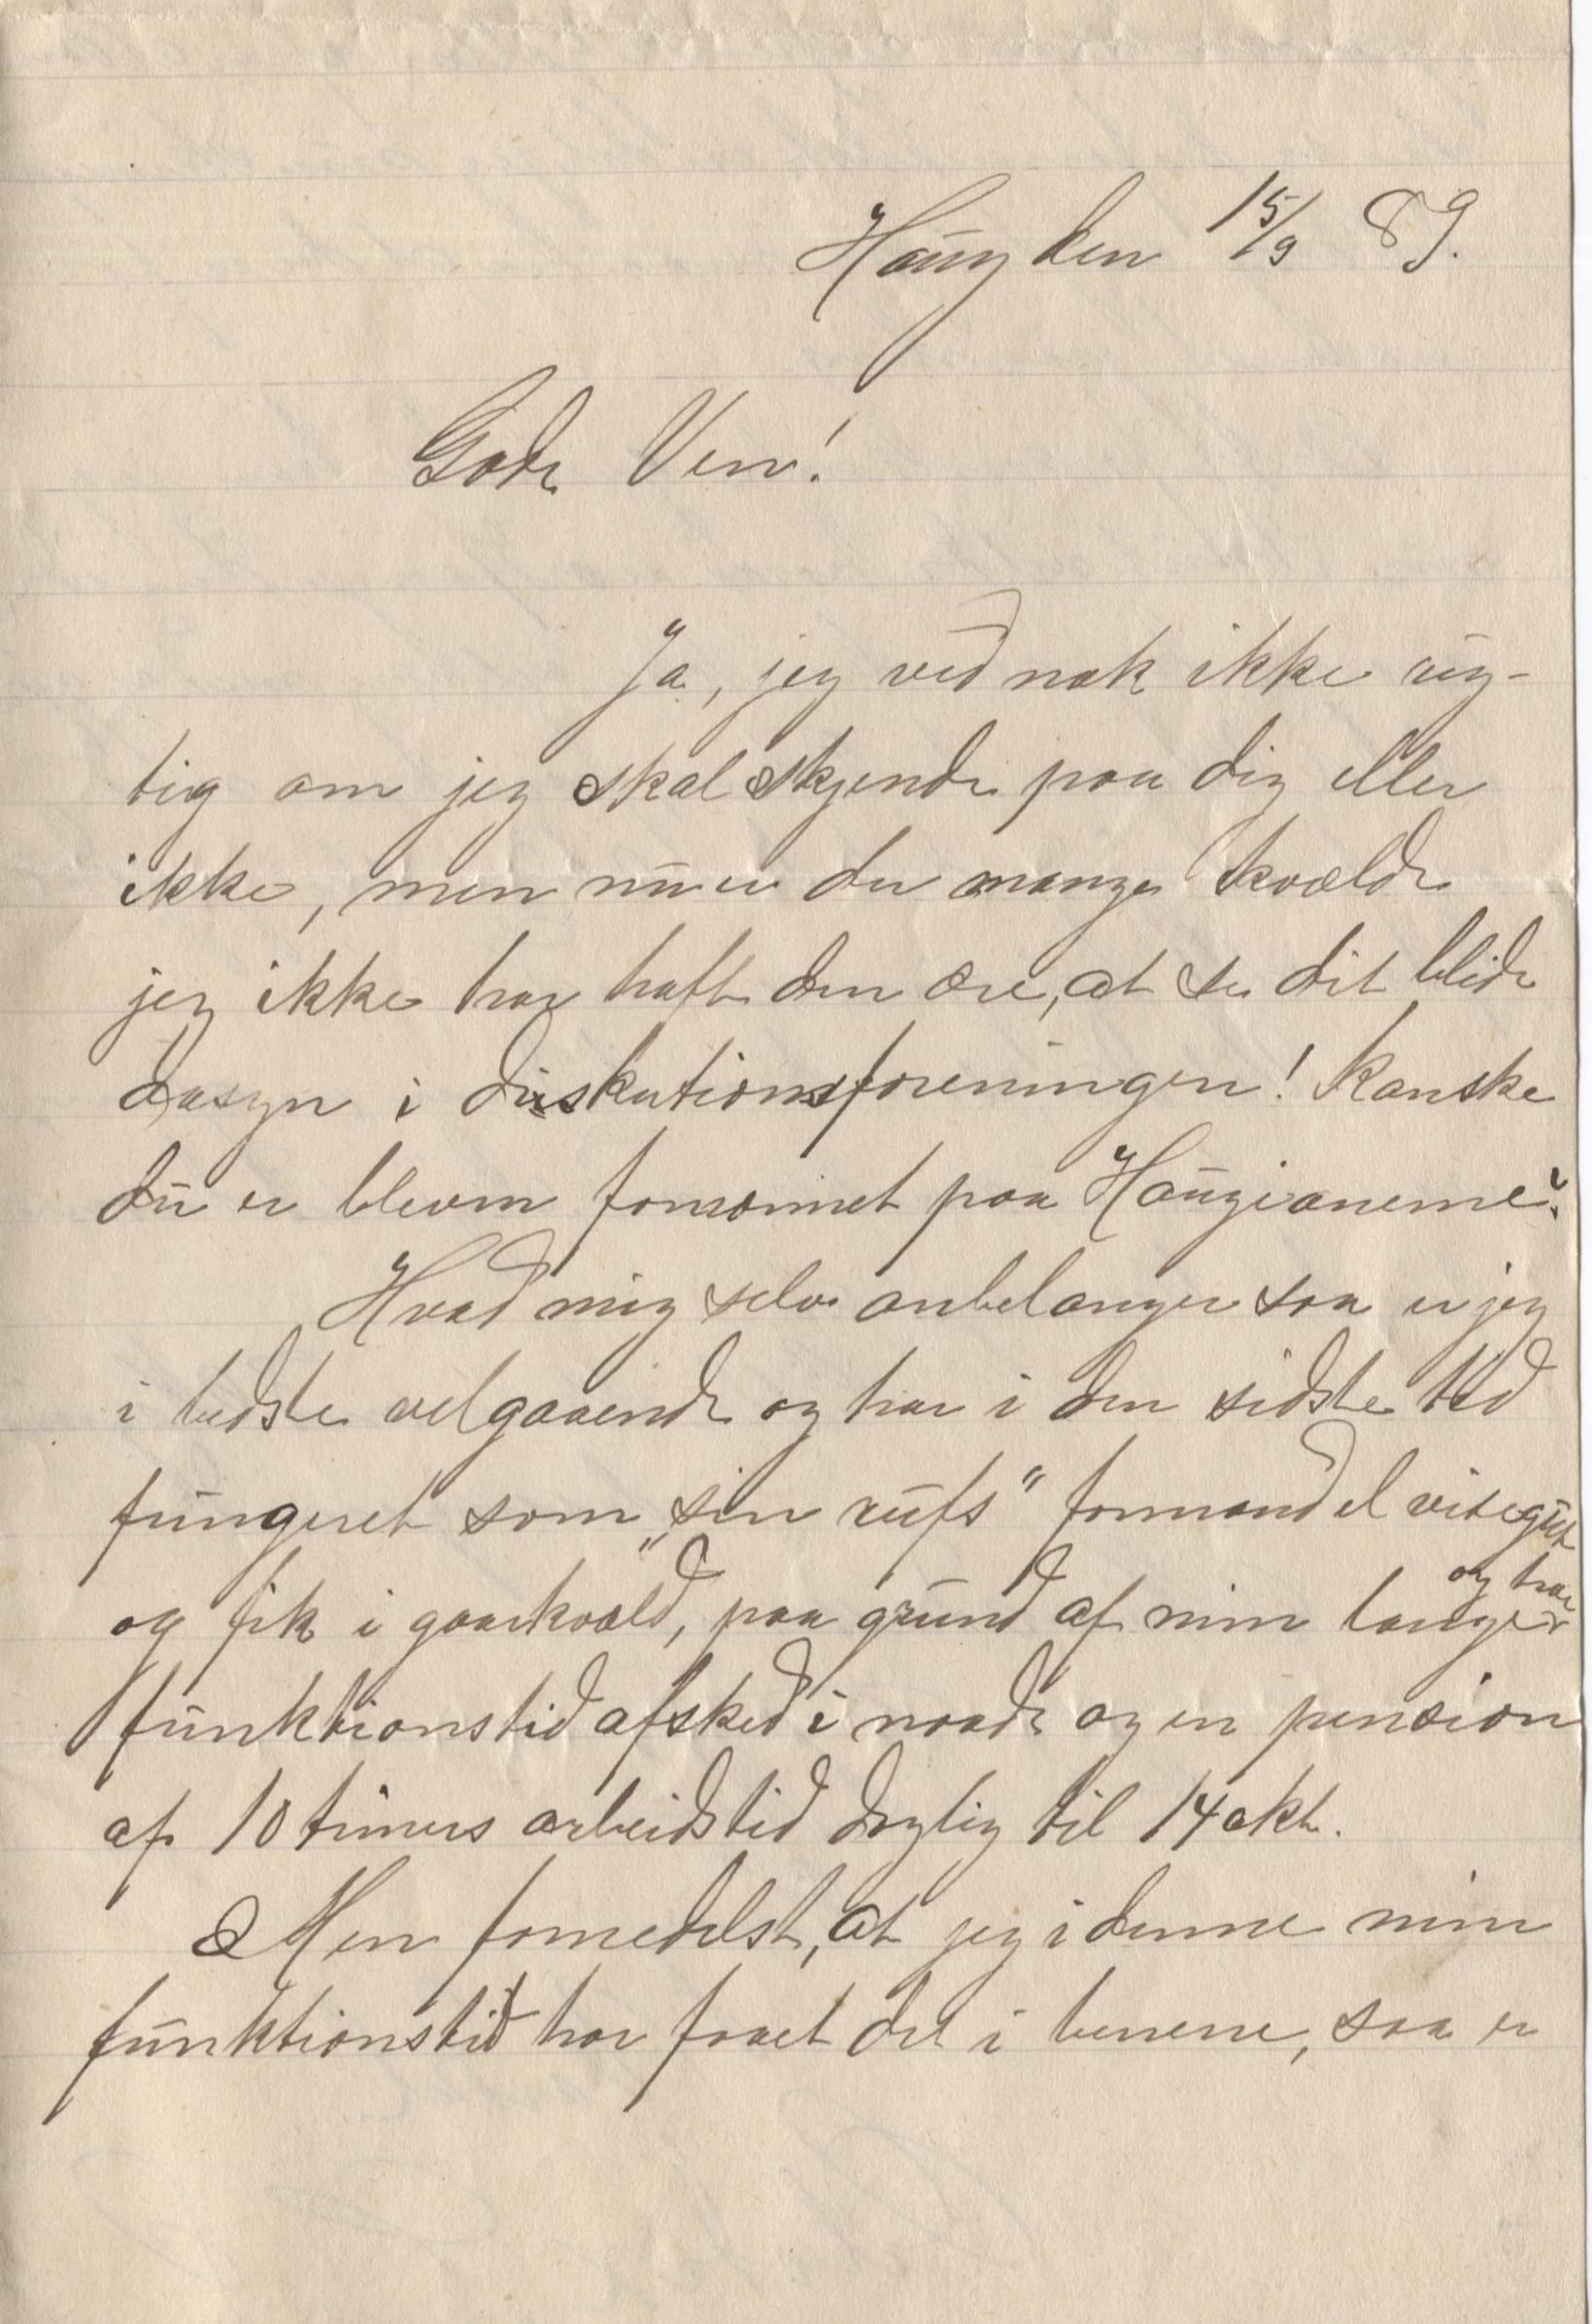 Haug den 15/9 89.
Gode Ven!
Ja, jeg ved nok ikke rig-
tig om jeg skal skjende paa dig eller
ikke, men nu er der mange kvælde
jeg ikke har haft den ære, at se dit blide
aasyn i diskutionsforeningen! Kanske
du er bleven fornærmet paa Haugianerne?
Hvad mig selv anbelanger saa er jeg
i bedste velgaaende og har i den sidste tid
fungeret som „sin rufs“ formand el visegut
og fik i gaarkvæld, paa grund af min lange og tro
funktionstid afsked i naade og en pension
af 10 timers arbeidstid daglig til 14 okt.
Men formedelst, at jeg i denne min
funktionstid har faaet det i benene, saa er